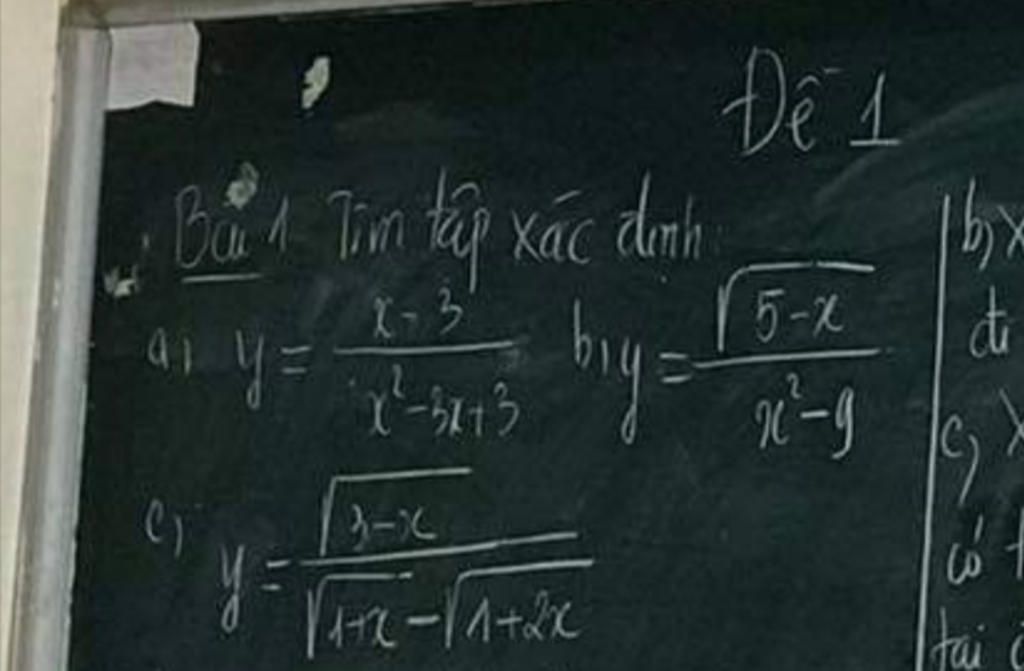 Đề 1
Bài 1 Tìm tập xác định:
a, y = (x - 3)/(x² - 3x + 3) b, y = √(5 - x)/(x² - 9)
c, y = √(3 - x)/(√(1 + x) - √(1 + 2x))
b, x
đi
c, x
có t
tại